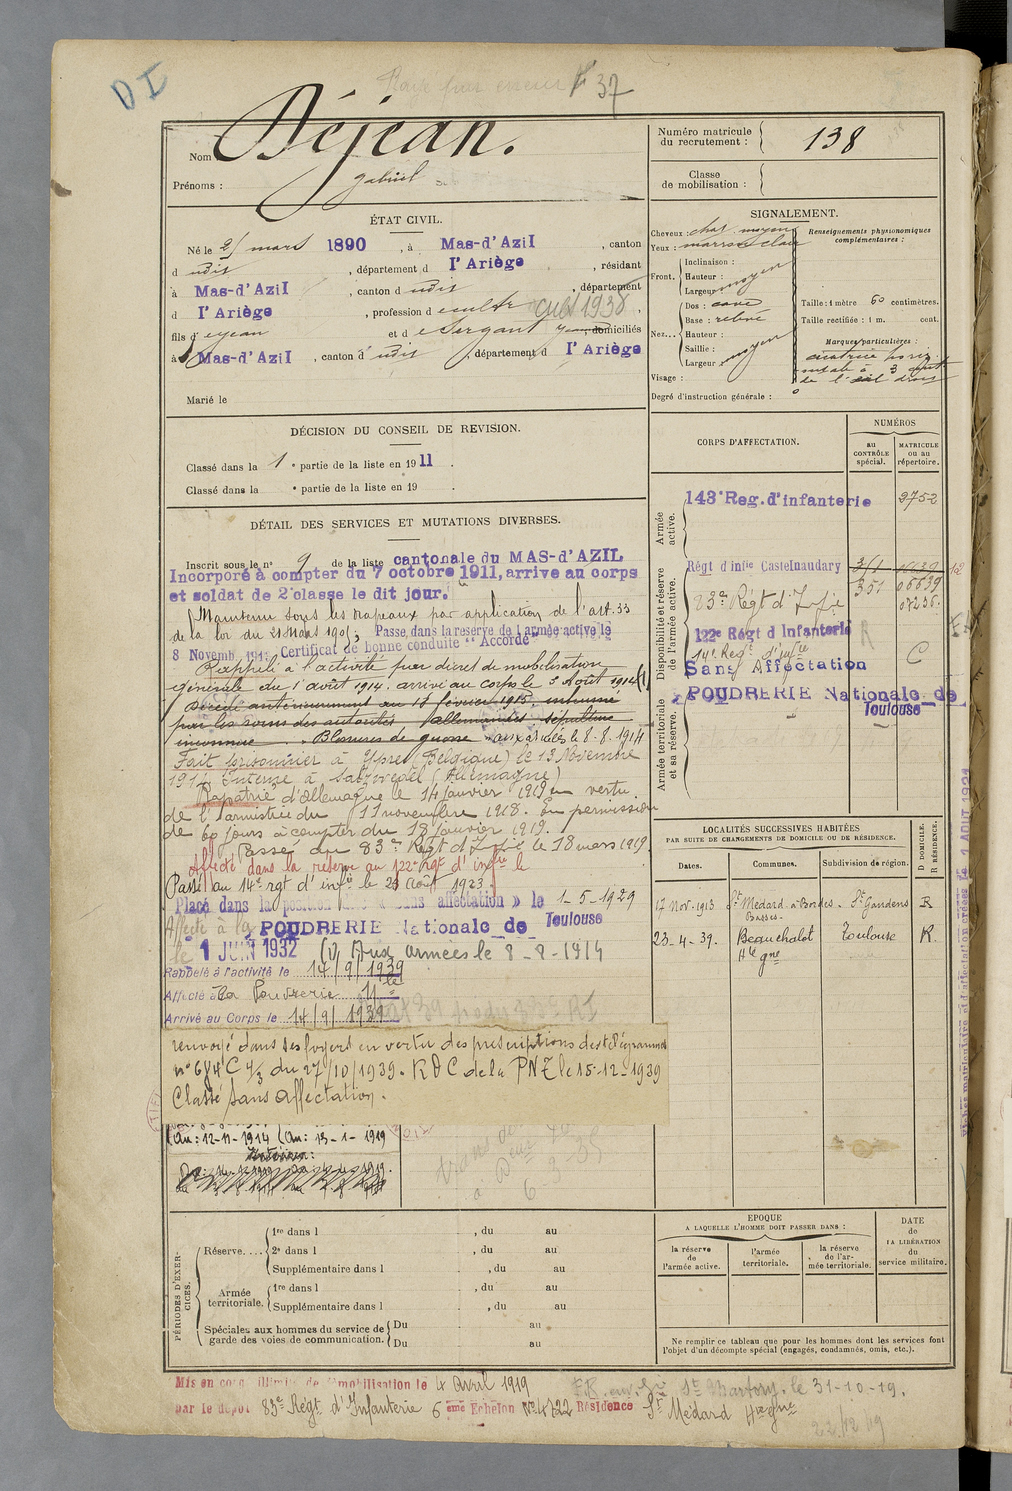 DI
F 37
Nom Déjean.
Prénoms : Gabriel
Numéro matricule du recrutement : 138
Classe de mobilisation :
ÉTAT CIVIL.
Né le 21 mars 1890, à Mas-d'Azil, canton
d udit, département d l'Ariège, résidant
à Mas-d'Azil, canton d udit, département
d l'Ariège, profession d cultr cult 1938.
fils d' et d domiciliés
à Mas-d'Azil, canton d udit, département d l'Ariège
Marié le
SIGNALEMENT.
Cheveux : chat. moyen
Yeux : marron clair
Front. Inclinaison :
Hauteur : moyen
Largeur
Nez... Dos : cave
Base : relevé
Hauteur :
Saillie : moyen
Largeur :
Visage :
Degré d'instruction générale :
Renseignements physionomiques complémentaires :
Taille : 1 mètre 60 centimètres.
Taille rectifiée : 1 m. cent.
Marques particulières :
cicatrice horiz.
à 3
de l'œil droit
DÉCISION DU CONSEIL DE REVISION.
Classé dans la 1 e partie de la liste en 1911.
Classé dans la e partie de la liste en 19 .
DÉTAIL DES SERVICES ET MUTATIONS DIVERSES.
Inscrit sous le n° 9 de la liste cantonale du MAS-d'AZIL
Incorporé à compter du 7 octobre 1911, arrivé au corps
et soldat de 2e classe le dit jour.
Maintenu sous les drapeaux par application de l'art. 33
de la loi du 21 Mars 1905, Passé dans la réserve de l'armée active le
8 Novemb. 191 Certificat de bonne conduite "Accordé"
Rappelé à l'activité par décret de mobilisation
générale du 1 août 1914. arrivé au corps le 3 Août 1914 (1)
Décédé antérieurement au 18 février 1915, inhumé
par les soins des autorités allemandes sépulture
inconnue. Blessures de guerre aux armées le 8-8-1914
Fait prisonnier à Ypres (Belgique) le 13 Novembre
1914 Interné à Salzwedel (Allemagne)
Rapatrié d'Allemagne le 14 Janvier 1919 en vertu
de l'armistice du 11 novembre 1918. En permission
de 60 jours à compter du 18 Janvier 1919.
Passé au 83e Régt d'Infie le 18 mars 1919.
Affecté dans la réserve au 122e Rgt d'infie le
Passé au 14e rgt d'infie le 29 Août 1923.
Placé dans la position dite « sans affectation » le 1-5-1929
Affecté à la POUDRERIE Nationale de Toulouse
le 1 JUIN 1932 (1) Aux armées le 8-8-1914
Rappelé à l'activité le 14/9/1939
Affecté à la Poudrerie Nle
Arrivé au Corps le 14/9/1939
renvoyé dans ses foyers en vertu des prescriptions des télégrammes
n° 684 C 4/3 du 27/10/1939. RDC de la PNZ le 15-12-1939
Classé Sans affectation.
Du : 12-11-1914 Au : 13-1-1919
Intérieur :
CORPS D'AFFECTATION.
NUMÉROS
au CONTRÔLE spécial.
MATRICULE ou au répertoire.
Armée active.
143e Reg. d'infanterie 2752
Disponibilité et réserve de l'armée active.
Régt d'infie Castelnaudary
351 06639
83e Régt d'Infie 07236
122e Régt d'Infanterie R
14e Régt d'infie C
Sans Affectation
Armée territoriale et sa réserve.
POUDRERIE Nationale de Toulouse
LOCALITÉS SUCCESSIVES HABITÉES
PAR SUITE DE CHANGEMENTS DE DOMICILE OU DE RÉSIDENCE.
Dates. Communes. Subdivision de région. D DOMICILE. R RÉSIDENCE.
17 Nov. 1913 St Médard à Bordes Basses. St Gaudens R
23-4-39. Beauchalot Hte Gne Toulouse R.
PÉRIODES D'EXERCICES.
Réserve.... 1re dans l , du au
2e dans l , du au
Supplémentaire dans l , du au
Armée territoriale. 1re dans l , du au
Supplémentaire dans l , du au
Spéciales aux hommes du service de garde des voies de communication. Du au
Du au
EPOQUE
A LAQUELLE L'HOMME DOIT PASSER DANS :
la réserve de l'armée active.
l'armée territoriale.
la réserve de l'armée territoriale.
DATE de LA LIBÉRATION du service militaire.
Ne remplir ce tableau que pour les hommes dont les services font l'objet d'un décompte spécial (engagés, condamnés, omis, etc.).
Mis en congé illimité de démobilisation le 4 Avril 1919
par le dépôt 83e Régt d'Infanterie 6 ème Echelon N° 4722 Résidence St Médard Hte Gne
St Martory. le 31-10-19.
22/12/19